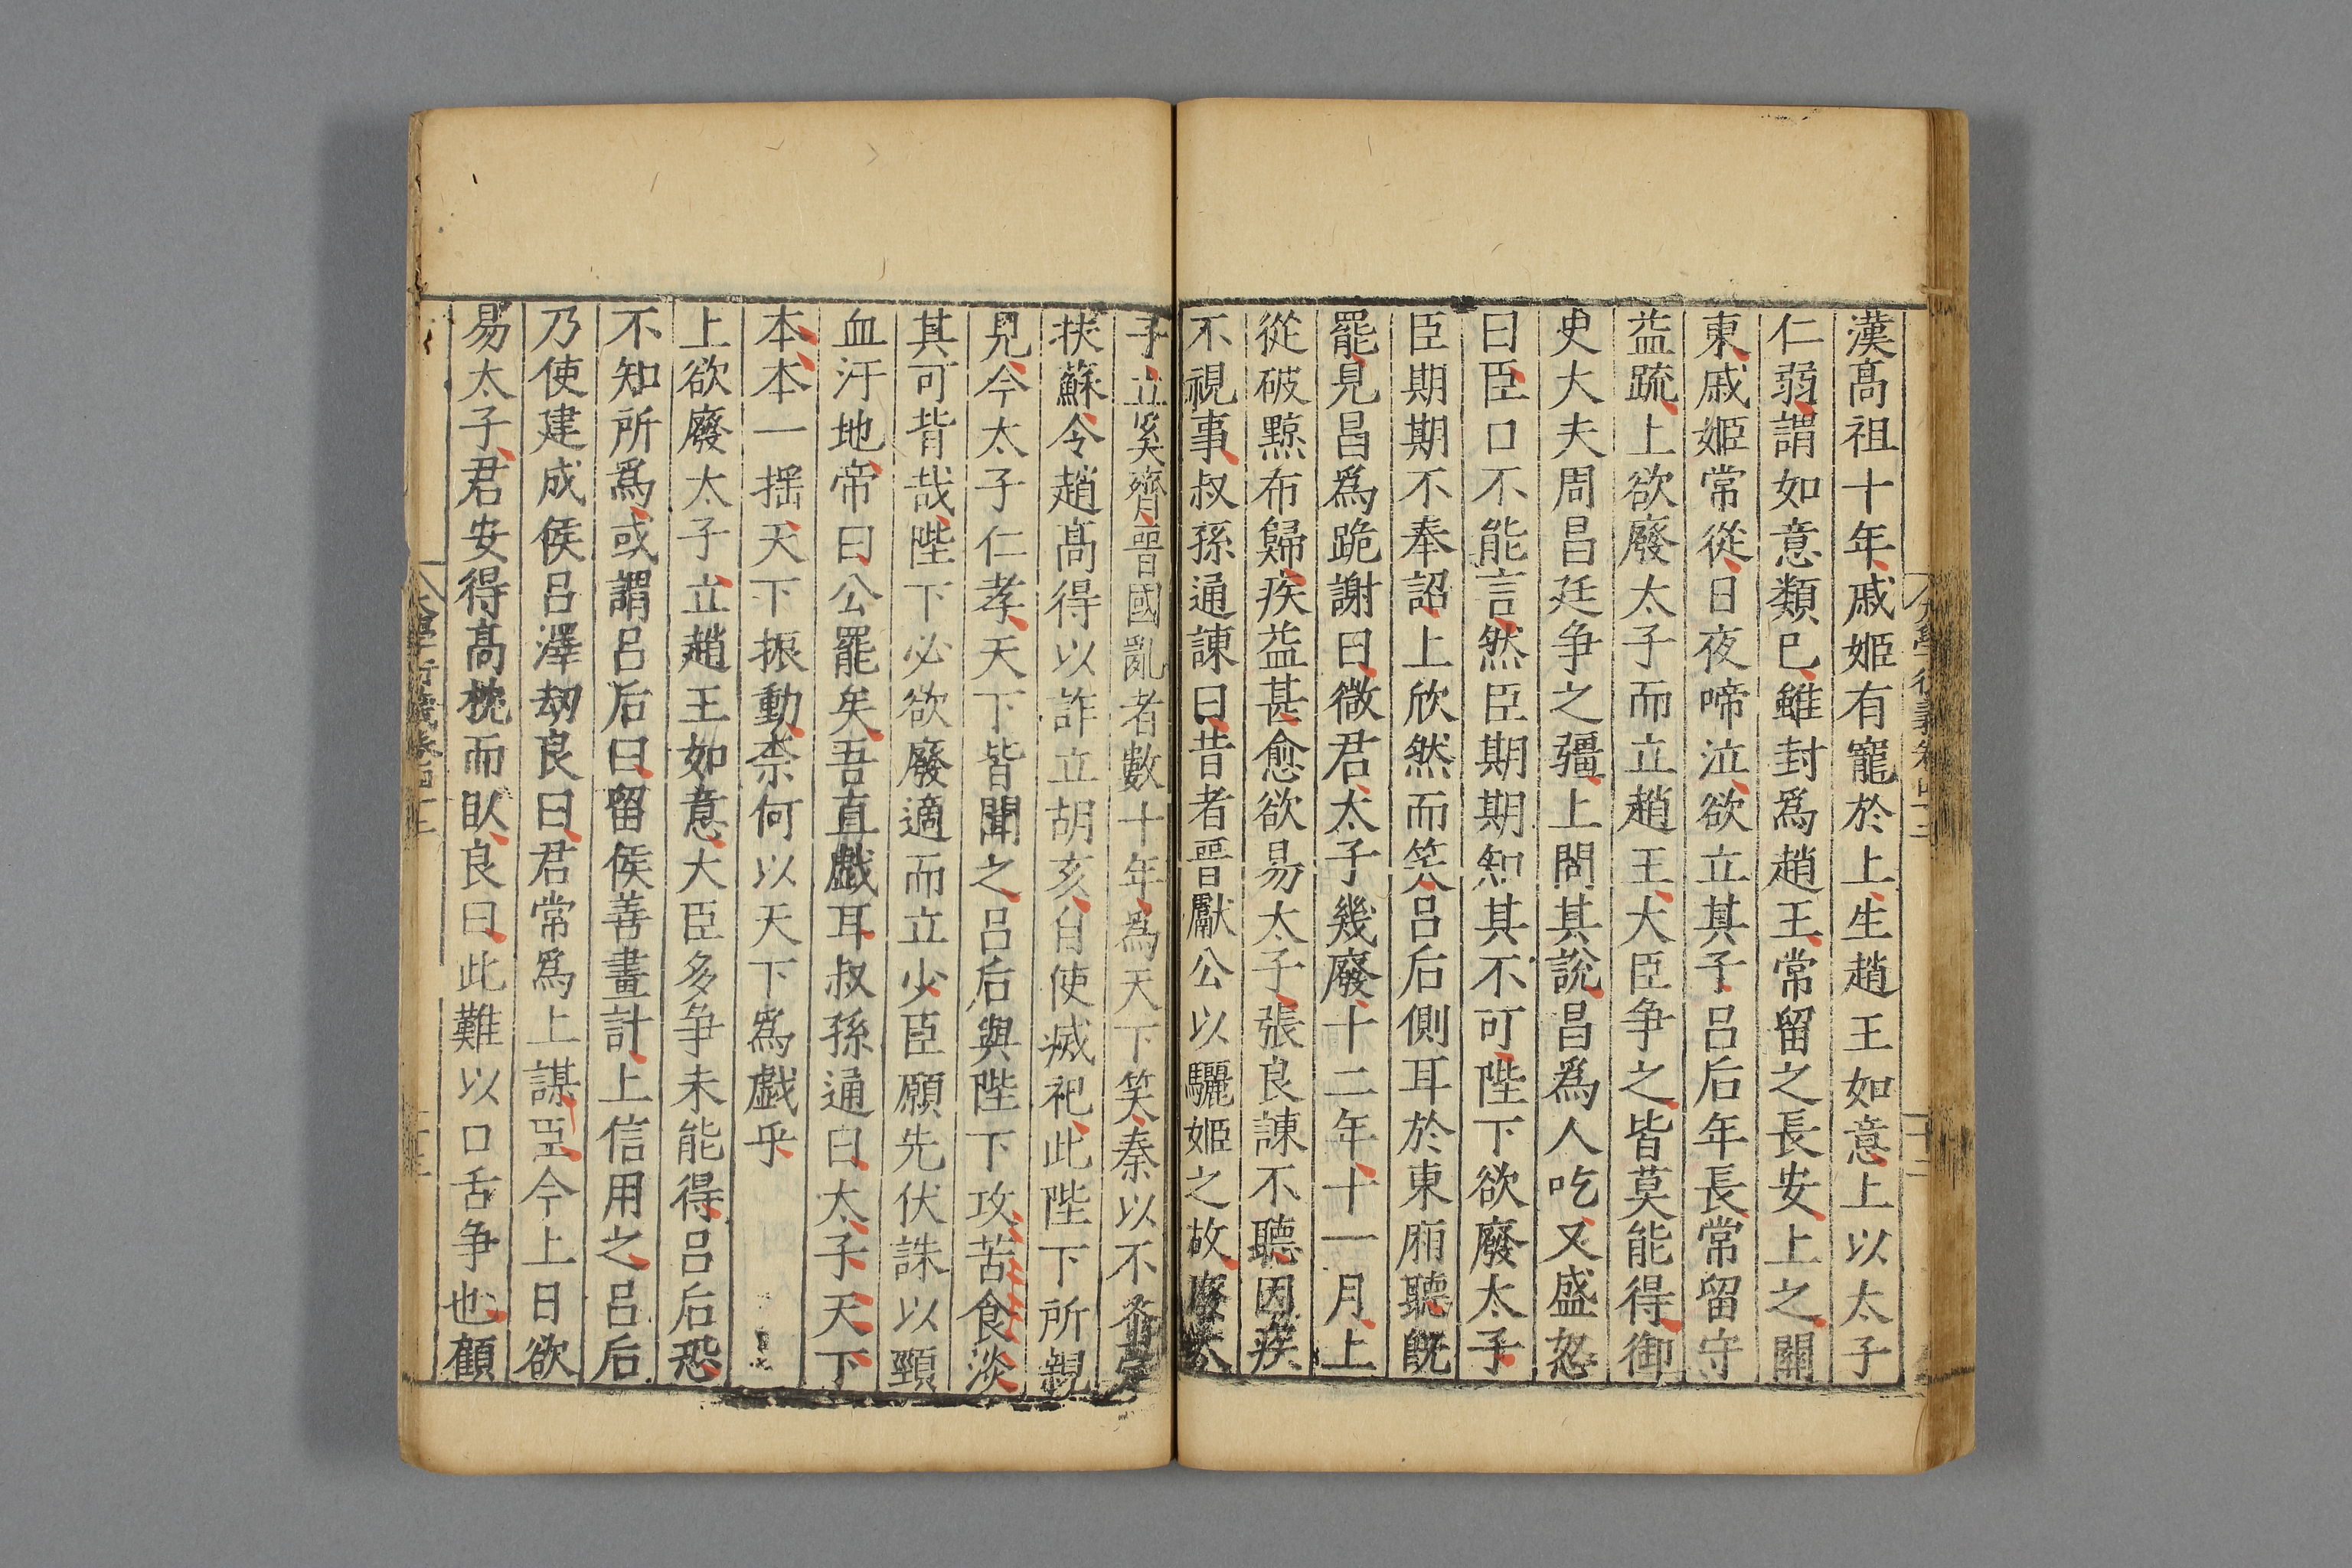 漢髙祖十年戚姬有寵於上生趙王如意上以太子
仁弱謂如意類已雖封爲趙王常留之長安上之關
東戚姬常從日夜啼泣欲立其子吕后年長常留守
益踈上欲廢太子而立趙王大臣争之皆莫能得御
史大夫周昌廷争之彊上問其說昌爲人吃又盛怒
曰臣口不能言然臣期期知其不可陛下欲廢太子
臣期期不奉詔上欣然而笑吕后側耳於東廂聽既
罷見昌爲跪謝曰微君太子幾廢十二年十一月上
從破黥布歸疾益甚愈欲易太子張良諫不聽因疾
不視事叔孫通諫曰昔者晉獻公以驪姬之故廢太
子立奚齊晉國亂者數十年爲天下笑秦以不蚤定
扶蘇令趙髙得以詐立胡亥自使滅祀此陛下所親
見今太子仁孝天下皆聞之吕后與陛下攻苦食淡
其可背哉陛下必欲廢適而立少臣願先伏誅以頸
血汙地帝曰公罷矣吾直戲耳叔孫通曰太子天下
本本一揺天下振動柰何以天下爲戲乎
上欲廢太子立趙王如意大臣多争未能得吕后恐
不知所爲或謂吕后曰留侯善畫計上信用之吕后
乃使建成侯吕澤劫良曰君常爲上謀臣今上日欲
易太子君安得髙枕而臥良曰此難以口舌争也顧